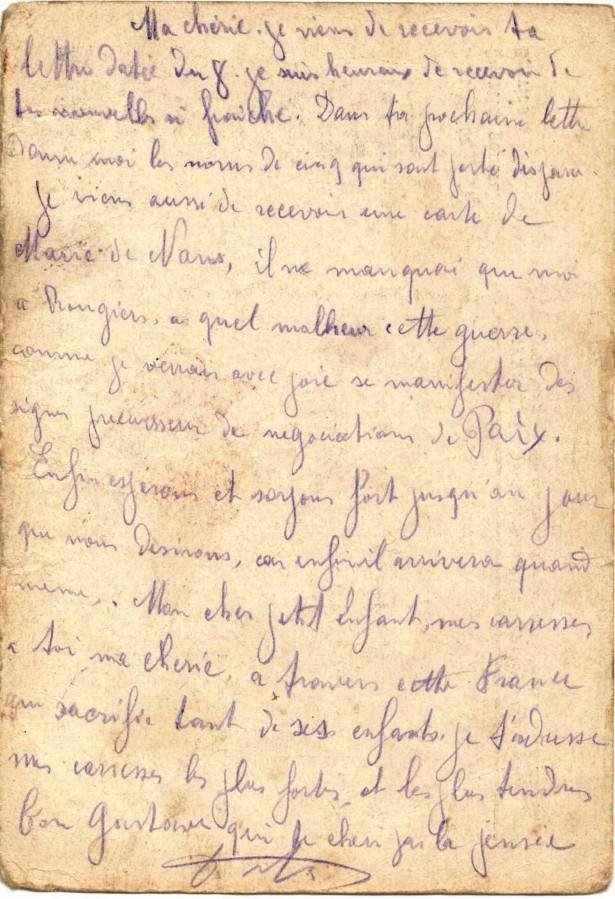 Ma chérie. je viens de recevoir ta
lettre datée du 8. je suis heureux de recevoir de
tes nouvelles si fraîche. Dans ta prochaine lettre
Donne moi les noms de cinq qui sont porté disparu
je viens aussi de recevoir une carte de
Marie de Nans, il ne manquai que moi
a Rougiers. a quel malheur cette guerre,
comme je verrais avec joie se manifester des
signes precurseur de negociations de Paix.
Enfin espérons et soyons fort jusqu'au jour
que nous desirons, car enfin il arrivera quand
meme.. Mon cher petit Enfant, mes carresses
a toi ma cherie, a travers cette France
qui sacrifie tant de ses enfants. je t'adresse
mes carresses les plus fortes, et les plus tendres
ton Gustave qui te cheri par la pensée